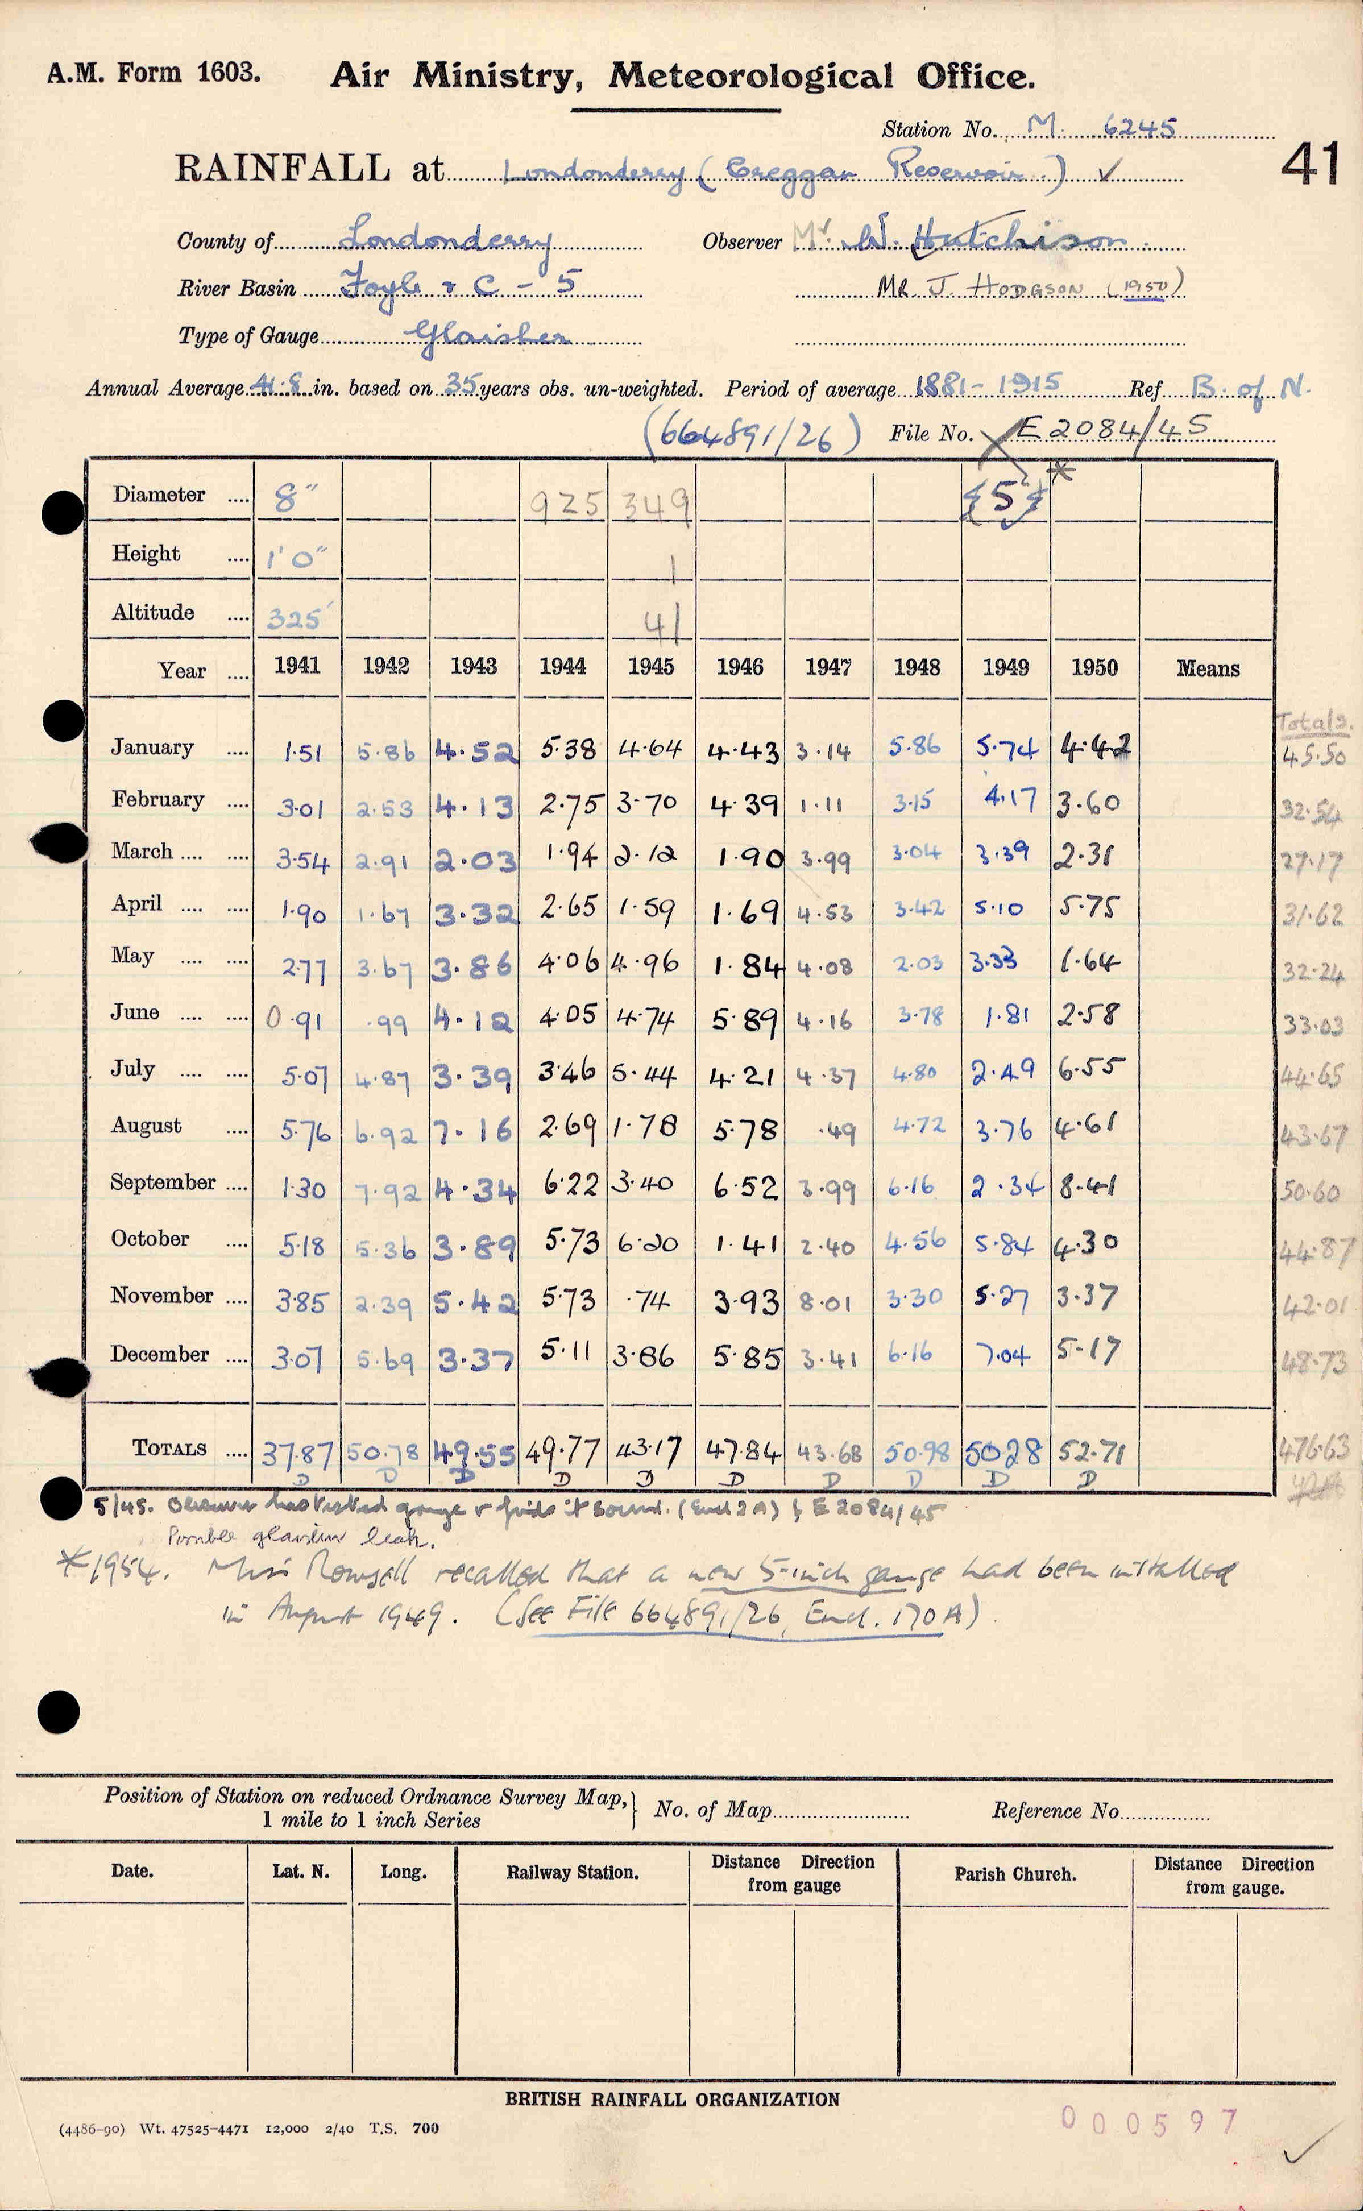 A.M. Form 1603. Air Ministry, Meteorological Office.
Station No. M. 6245
41
RAINFALL at Londonderry (Creggan Reservoir.) ✓
County of Londonderry Observer Mr. W. Hutchison
River Basin Foyle & C - 5 MR. J. HODGSON (1950)
Type of Gauge Glaisher
Annual Average 41.8 in. based on 35 years obs. un-weighted. Period of average 1881-1915 Ref B. of N.
(664891/26) File No. E2084/45
Diameter .... 8" 925 349 {5"} *
Height .... 1'0" 1
Altitude .... 325' 41
Year .... 1941 1942 1943 1944 1945 1946 1947 1948 1949 1950 Means
Totals.
January .... 1.51 5.86 4.52 5.38 4.64 4.43 3.14 5.86 5.74 4.42 45.50
February .... 3.01 2.53 4.13 2.75 3.70 4.39 1.11 3.15 4.17 3.60 32.54
March .... .... 3.54 2.91 2.03 1.94 2.12 1.90 3.99 3.04 3.39 2.31 27.17
April .... .... 1.90 1.67 3.32 2.65 1.59 1.69 4.53 3.42 5.10 5.75 31.62
May .... .... 2.77 3.67 3.86 4.06 4.96 1.84 4.08 2.03 3.33 1.64 32.24
June .... .... 0.91 .99 4.12 4.05 4.74 5.89 4.16 3.78 1.81 2.58 33.03
July .... .... 5.07 4.87 3.39 3.46 5.44 4.21 4.37 4.80 2.49 6.55 44.65
August .... 5.76 6.92 7.16 2.69 1.78 5.78 .49 4.72 3.76 4.61 43.67
September .... 1.30 7.92 4.34 6.22 3.40 6.52 3.99 6.16 2.34 8.41 50.60
October .... 5.18 5.36 3.89 5.73 6.20 1.41 2.40 4.56 5.84 4.30 44.87
November .... 3.85 2.39 5.42 5.73 .74 3.93 8.01 3.30 5.27 3.37 42.01
December .... 3.07 5.69 3.37 5.11 3.86 5.85 3.41 6.16 7.04 5.17 48.73
TOTALS .... 37.87 50.78 49.55 49.77 43.17 47.84 43.68 50.98 50.28 52.71 476.63
D D D D D D D D D D
5/45. Observer has tested gauge & finds it sound. (Encl 2A) E2084/45
Possible glaisher leak.
*1954. Miss Rowsell recalled that a new 5-inch gauge had been installed
in August 1949. (See File 664891/26, Encl. 170A).
Position of Station on reduced Ordnance Survey Map,} No. of Map Reference No
1 mile to 1 inch Series
Date. Lat. N. Long. Railway Station. Distance Direction from gauge Parish Church. Distance Direction from gauge.
BRITISH RAINFALL ORGANIZATION
(4486-90) Wt. 47525-4471 12,000 2/40 T.S. 700
000597
✓